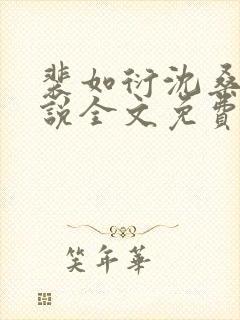 裴如衍沈桑
說全文免費
笑年華